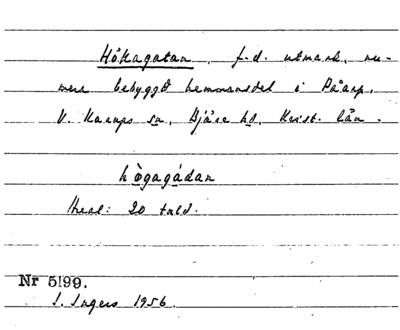 Hökagatan, f.d. utmark, nu-
mera bebyggd hemmansdel i Påarp,
V. Karups sn, Bjäre hd, Krist. län.
hògagádan
Areal: 20 tnld.
Nr 5199.
I. Ingers 1956.